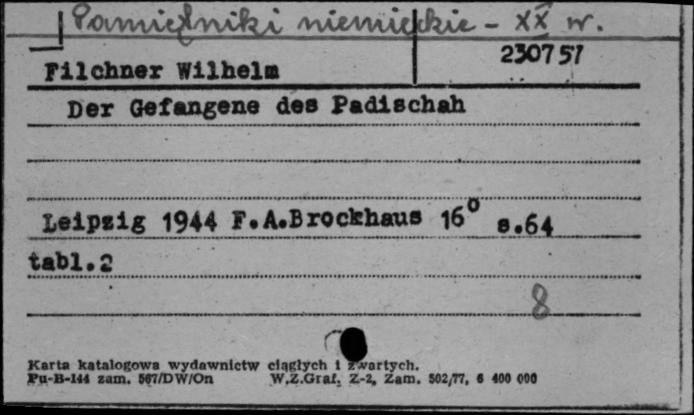 Pamiętniki niemieckie - XX w.
230751
Filchner Wilhelm
Der Gefangene des Padischah
Leipzig 1944 F.A.Brockhaus 16° s.64
tabl.2
8
Karta katalogowa wydawnictw ciągłych i zwartych.
Pu-B-144 zam. 567/DW/On W.Z.Graf. Z-2, Zam. 502/77, 6 400 000